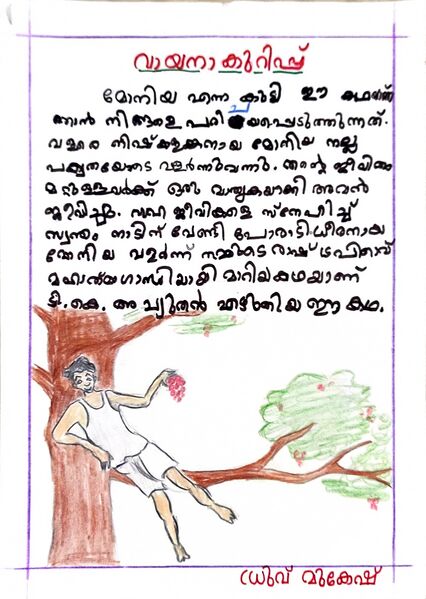 വായനാകുറിപ്പ്
മോനിയ എന്ന കുട്ടി ഈ കഥയാണ്
ഞാൻ നിങ്ങളെ പരിചയപ്പെടുത്തുന്നത്.
വളരെ നിഷ്കളങ്കനായ മോനിയ നല്ല
പക്വതയോടെ വളർന്നുവന്നു. തന്റെ ജീവിതം
മറ്റുള്ളവർക്ക് ഒരു മാതൃകയാക്കി അവൻ
ജീവിച്ചു. സഹജീവികളെ സ്നേഹിച്ച്
സ്വന്തം നാടിന് വേണ്ടി പോരാടി ധീരനായ
മോനിയ വളർന്ന് നമ്മുടെ രാഷ്ട്രപിതാവ്
മഹാത്മാഗാന്ധിയായി മാറിയ കഥയാണ്
ടി.കെ. അച്യുതൻ എഴുതിയ ഈ കഥ.
ധ്രുവ് മുകേഷ്